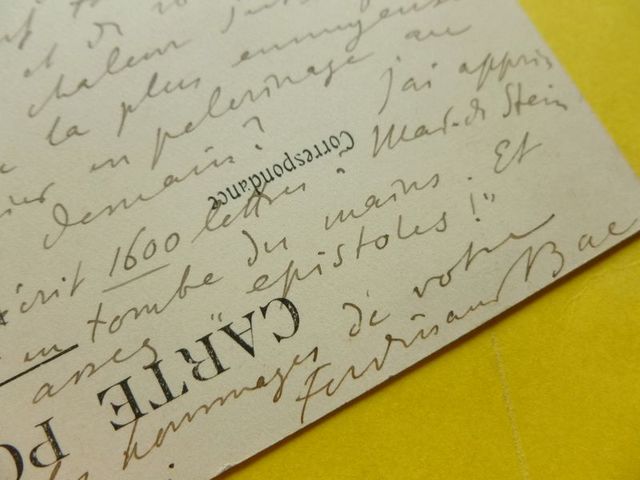 et de
chaleur
la plus ennuyeuse
en pelerinage au
demain? j'ai appris
écrit 1600 lettres à Mad. de Stein
en tombe du mains. Et
assez "epistoles!"
hommages de votre
Ferdinand Bac
Correspondance
CARTE PO